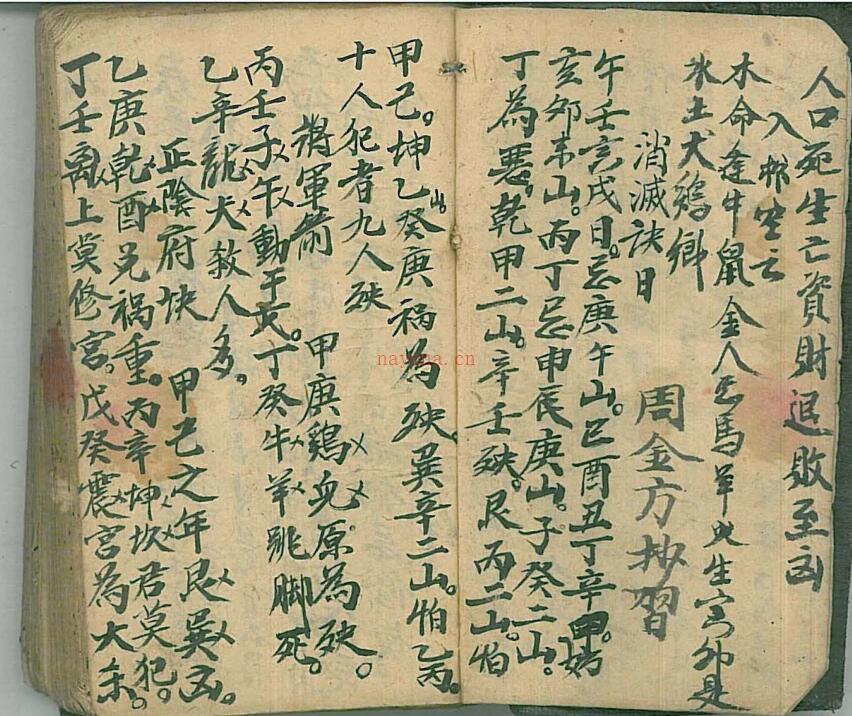 人口死生亡資財退敗至凶
入　空亡
木命逢牛鼠金人忌馬羊火生寅卯是
水土犬鷄鄉
消滅訣日
周金方抄習
午壬亥戌日。忌庚午山。巳酉丑丁辛甲
亥卯未山。丙丁忌申辰庚山。子癸二山。
丁為惡。乾甲二山。辛壬殃。艮丙二山。怕
甲己。坤乙山。癸庚禍為殃。巽辛二山。怕乙丙。
十人犯者九人殃
將軍箭
甲庚鷄兔原為殃。
丙壬子午動干戈。丁癸牛羊跳脚死。
乙辛龍犬救人多。
正陰府訣
甲己之年艮巽凶。
乙庚乾酉兌禍重。丙辛坤坎君莫犯。
丁壬离上莫修宮。戊癸震宮為大
nayona.cn